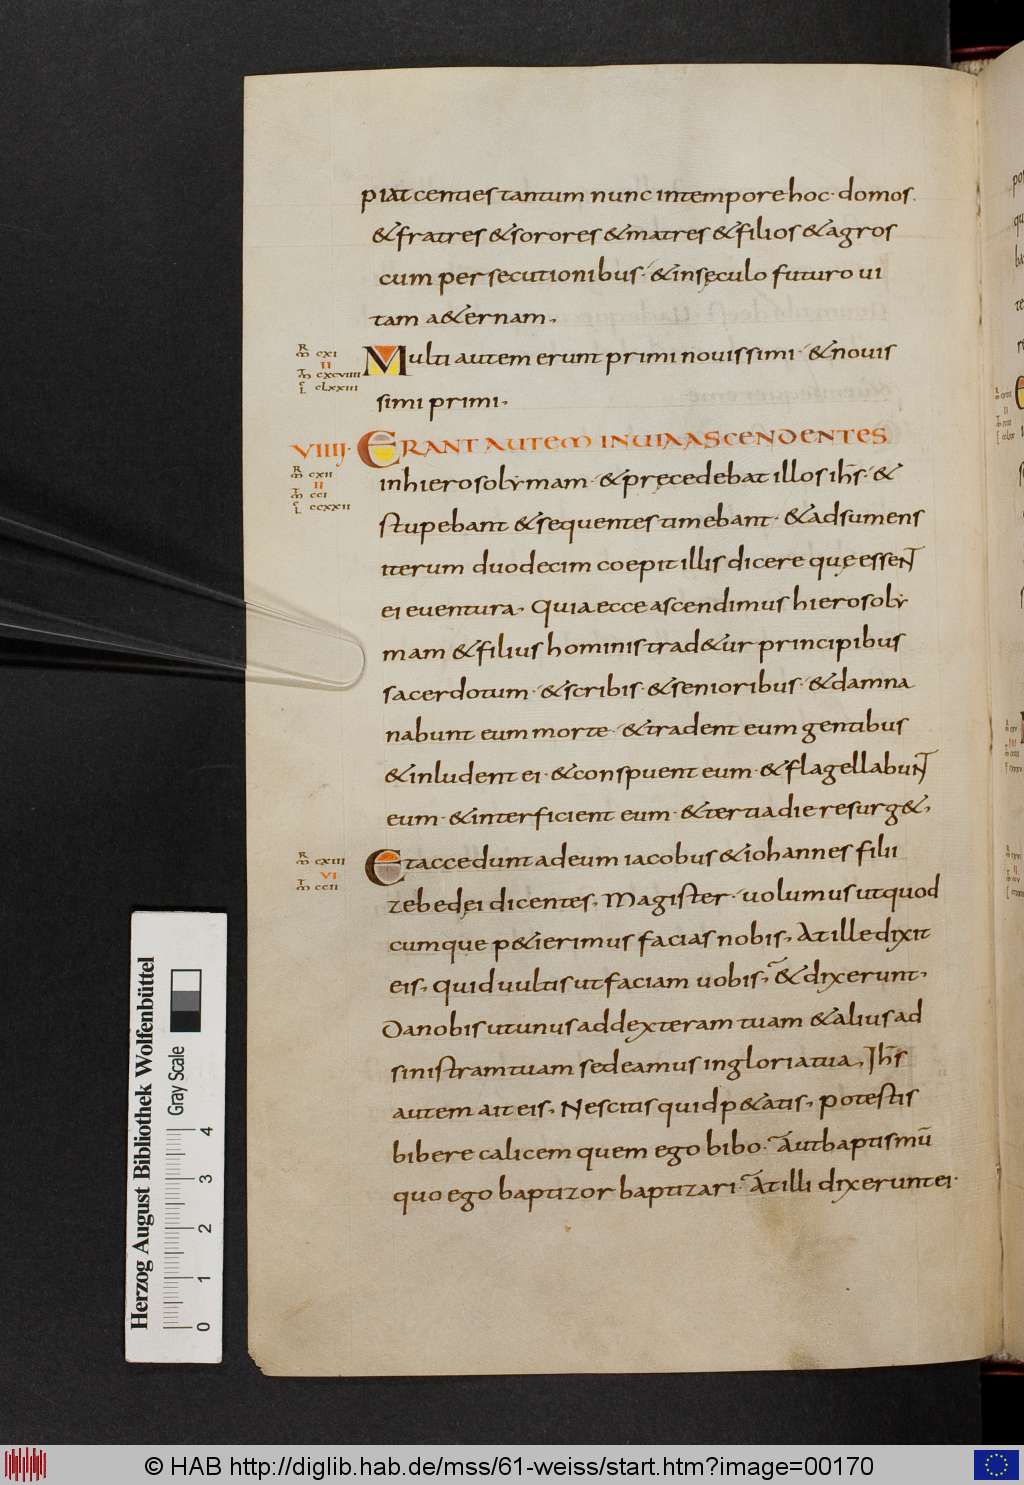 piat centies tantum nunc intempore hoc· domos.
&fratres &sorores &matres &filios &agros
cum persecutionibus· &insęculo futuro ui
tam a&ernam.
R̄ m̄ cxi
II
m̄ cxcviiii
L clxxiii
Multi autem erunt primi novissimi· &novis
simi primi.
VIIIJ· ERANT AUTEM INUIA ASCENDENTES
R̄ m̄ cxii
II
m̄ cci
L ccxxii
inhierosolymam· &pręcedebat illos ihs̄· &
stupebant &sequentes timebant· &adsumens
iterum duodecim coepit illis dicere quę essent
ei eventura. Quia ecce ascendimus hierosoly
mam &filius hominis trad&ur principibus
sacerdotum· &scribis· &senioribus· &damna
nabunt eum morte· &tradent eum gentibus
&inludent ei· &conspuent eum· &flagellabunt
eum· &interficient eum· &tertia die resurg&.
R̄ m̄ cxiii
VI
m̄ ccii
Et accedunt ad eum iacobus &iohannes filii
zebedęi dicentes. Magister· uolumus utquod
cumque p&ierimus facias nobis. At ille dixit
eis. quid vultis ut faciam uobis. &dixerunt.
Da nobis ut unus addexteram tuam &alius ad
sinistram tuam sedeamus in gloria tua. Ihs̄
autem ait eis. Nescitis quid p&atis. potestis
bibere calicem quem ego bibo· aut baptismū
quo ego baptizor baptizari· At illi dixerunt ei·
Herzog August Bibliothek Wolfenbüttel
Gray Scale
0 1 2 3 4
© HAB http://diglib.hab.de/mss/61-weiss/start.htm?image=00170